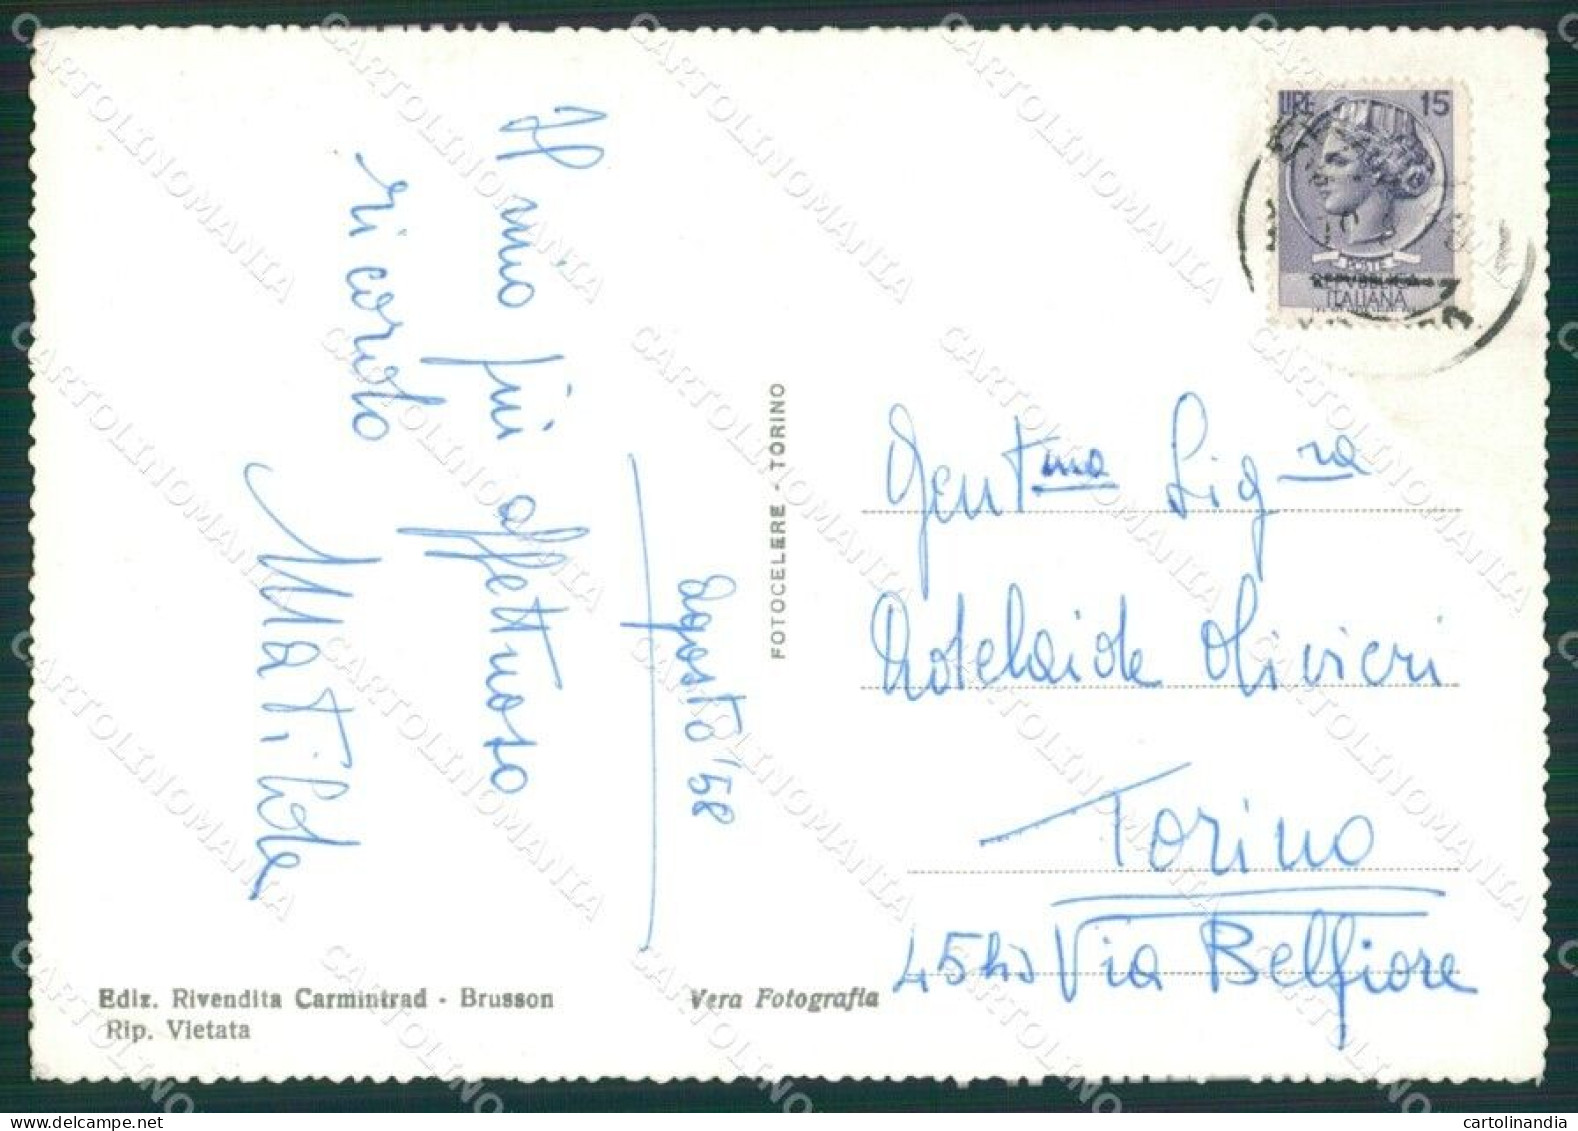 Il mio più affettuoso
ricordo
Matilde
Agosto '58
FOTOCELERE - TORINO
LIRE 15
POSTE
REPUBBLICA
ITALIANA
Gent.ma Sig.ra
Adelaide Olivieri
Torino
45 bis Via Belfiore
Ediz. Rivendita Carmintrad - Brusson
Rip. Vietata
Vera Fotografia
CARTOLINOMANIA
cartolinandia